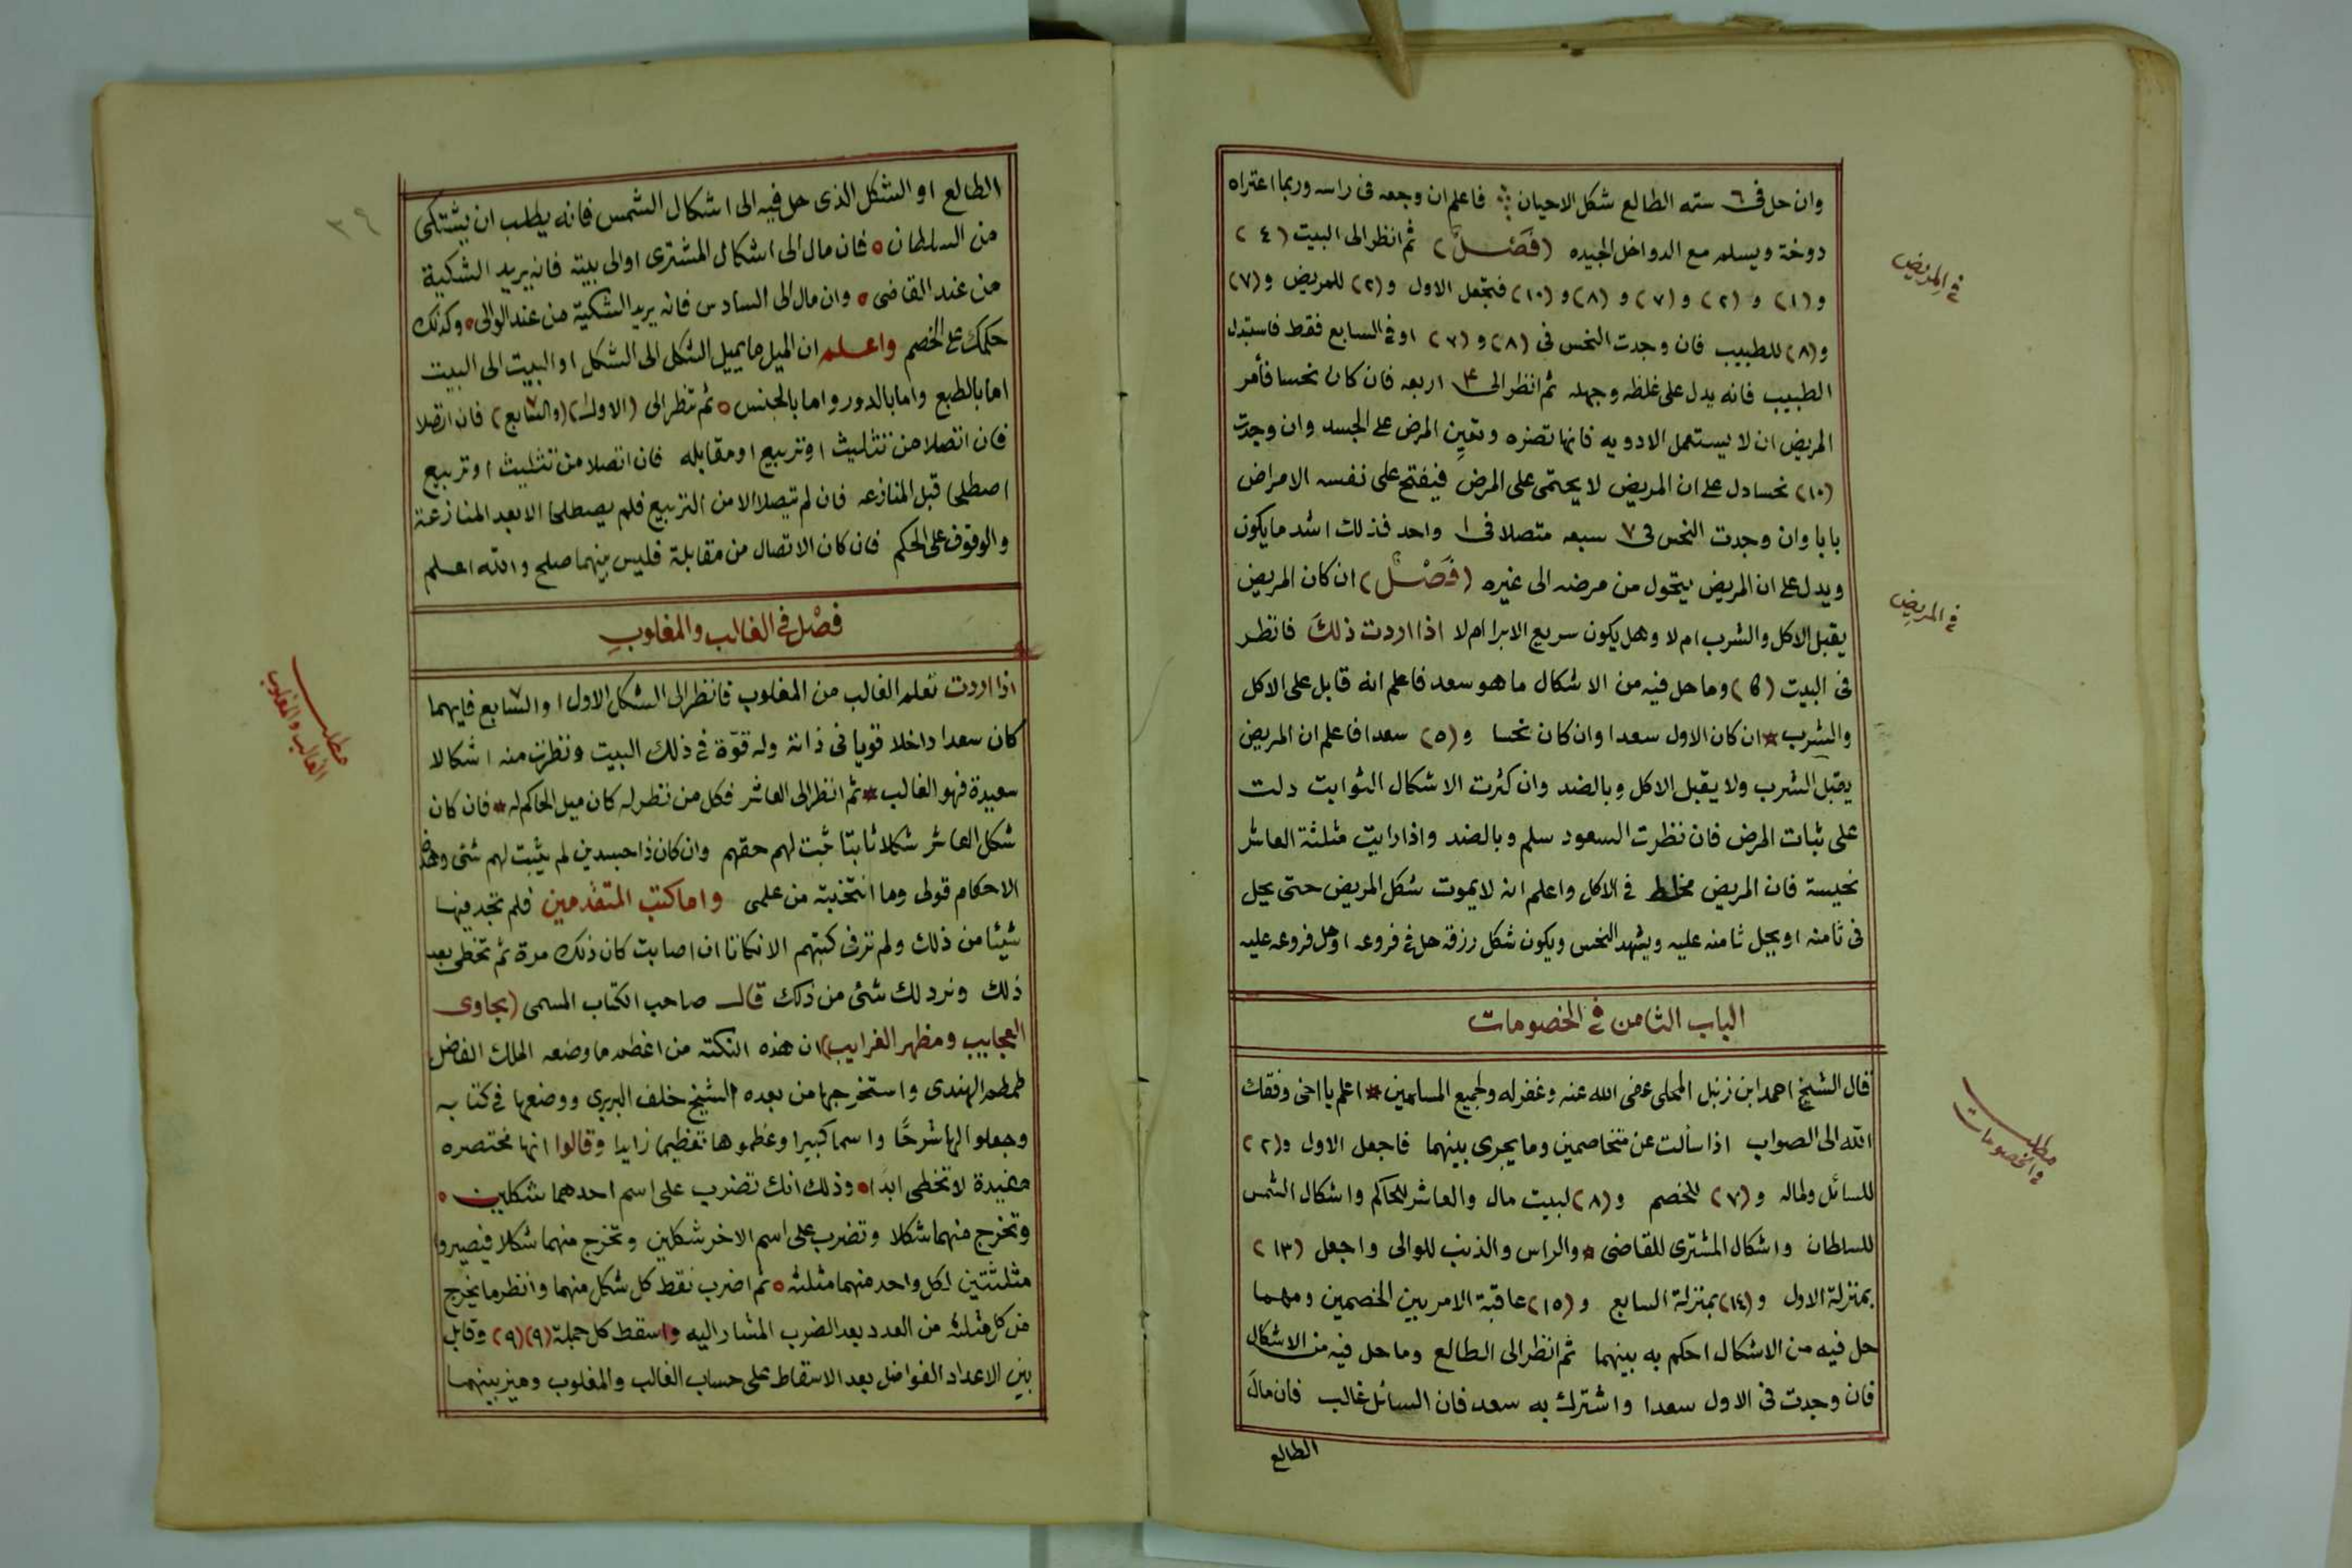 وان حل فى ٦ سته الطالع شكل الاحيان فاعلم ان وجعه فى راسه وربما اعتراه
دوخة ويسلم مع الدواخل الجيده (فَصْلٌ) ثم انظر الى البيت (٤)
و(١) و (٢) و(٧) و (٨) و (١٠) فتجعل الاول و(٢) للمريض و(٧)
و(٨) للطبيب فان وجدت النحس فى (٨) و (٧) او فى السابع فقط فاستبدل
الطبيب فانه يدل على غلظه وجهله ثم انظر الى ۴ اربعه فان كان نحسا فأمر
المريض ان لا يستعمل الادويه فانها تضره وتعين المرض على الجسد وان وجدت
(١٠) نحسا دل على ان المريض لا يحتمى على المرض فيفتح على نفسه الامراض
بابا وان وجدت النحس فى ٧ سبعه متصلا فى ١ واحد فذلك اشد ما يكون
ويدل على ان المريض يتحول من مرضه الى غيره (فَصْلٌ) ان كان المريض
يقبل الاكل والشرب ام لا وهل يكون سريع الابرا ام لا اذا اردت ذلك فانظر
فى البيت وما حل فيه من الاشكال ما هو سعد فاعلم انه قابل على الاكل
والشرب * ان كان الاول سعدا وان كان نحسا و(٥) سعدا فاعلم ان المريض
يقبل الشرب ولا يقبل الاكل وبالضد وان كثرت الاشكال الثوابت دلت
على ثبات المرض فان نظرت السعود سلم وبالضد واذا رايت مثلثة العاشر
نحيسة فان المريض مخلط فى الاكل واعلم انه لا يموت شكل المريض حتى يحل
فى ثامنه او يحل ثامنه عليه ويشهد النحس ويكون شكل رزقه حل فى فروعه او حل فروعه عليه
الباب الثامن فى الخصومات
قال الشيخ احمد ابن زنبل المحلى عفى الله عنه وغفر له ولجميع المسلمين * اعلم يا اخى وفقك
الله الى الصواب اذا سألت عن متخاصمين وما يجرى بينهما فاجعل الاول و(٢)
للسائل ولماله و(٧) للخصم و(٨) لبيت مال والعاشر للحاكم واشكال الشمس
للسلطان واشكال المشترى للقاضى * والراس والذنب للوالى واجعل (١٣)
بمنزلة الاول و(١٤) بمنزلة السابع و(١٥) عاقبة الامر بين الخصمين ومهما
حل فيه من الاشكال احكم به بينهما ثم انظر الى الطالع وما حل فيه من الاشكال
فان وجدت فى الاول سعدا واشترك به سعد فان السائل غالب فان مال
الطالع
فى المريض
فى المريض
مطلب
فى الخصومات
٣٩
الطالع او الشكل الذى حل فيه الى اشكال الشمس فانه يطلب ان يشتكى
من السلطان ه فان مال الى اشكال المشترى او الى بيته فانه يريد الشكية
من عند القاضى ه وان مال الى السادس فانه يريد الشكية من عند الوالى ه وكذلك
حكمك على الخصم واعلم ان الميل ما يميل الشكل الى الشكل او البيت الى البيت
اما بالطبع واما بالدور واما بالجنس ه ثم تنظر الى (الاول) (والسابع) فان اتصلا
فان اتصلا من تثليث او تربيع او مقابله فان اتصلا من تثليث او تربيع
اصطلحا قبل المنازعه فان لم يتصلا الا من التربيع فلم يصطلحا الا بعد المنازعة
والوقوف على الحكم فان كان الاتصال من مقابلة فليس بينهما صلح والله اعلم
فصْل فى الغالب والمغلوبِ
اذا اردت تعلم الغالب من المغلوب فانظر الى الشكل الاول او السابع فايهما
كان سعدا داخلا قويا فى ذاته وله قوّة فى ذلك البيت ونظرت منه اشكالا
سعيدة فهو الغالب * ثم انظر الى العاشر فكل من نظر له كان ميل الحاكم له * فان كان
شكل العاشر شكلا ثابتا ثبت لهم حقهم وان كان ذا جسدين لم يثبت لهم شئ وهذه
الاحكام قولى وما انتخبته من علمى واما كتب المتقدمين فلم تجد فيها
شيئا من ذلك ولم نر فى كتبهم الا نكاتا ان اصابت كان ذلك مرة ثم تخطى بعد
ذلك ونرد لك شئ من ذلك قال صاحب الكتاب المسمى (بحاوى
العجايب ومظهر الغرايب) ان هذه النكته من اعظم ما وضعه الملك الفاضل
طمطم الهندى واستخرجها من بعده الشيخ خلف البربرى ووضعها فى كتابه
وجعلوا لها شرحًا واسما كبيرا وعظموها تعظيما زايدا وقالوا انها مختصره
مفيدة لا تخطى ابدا ه وذلك انك تضرب على اسم احدهما شكلين ه
وتخرج منهما شكلا وتضرب على اسم الاخر شكلين وتخرج منهما شكلا فيصيروا
مثلثتين لكل واحد منهما مثلثه ه ثم اضرب نقط كل شكل منهما وانظر ما يخرج
من كل مثلثه من العدد بعد الضرب المشار اليه واسقط كل جملة (٩) (٩) وقابل
بين الاعداد الفواضل بعد الاسقاط على حساب الغالب والمغلوب وميز بينهما
مطلب
الغالب والمغلوب